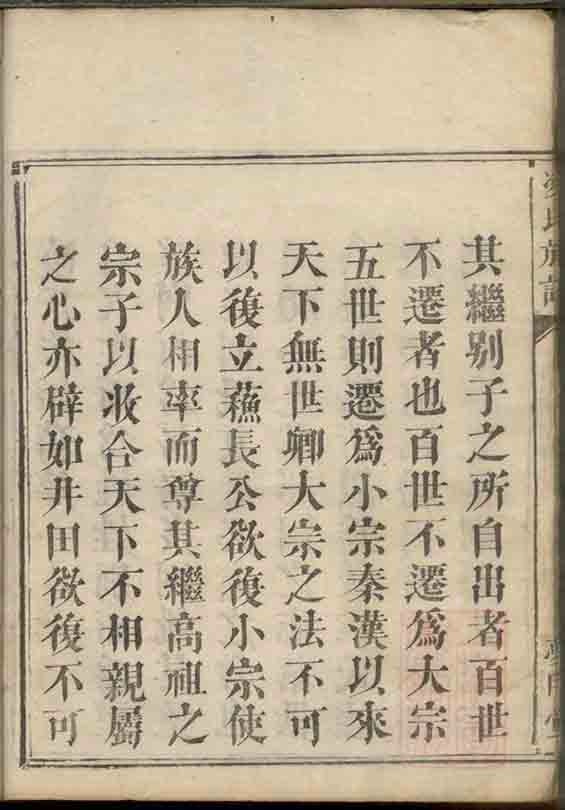 其繼别子之所自出者百世
不遷者也百世不遷爲大宗
五世則遷爲小宗秦漢以來
天下無世卿大宗之法不可
以復立蘓長公欲復小宗使
族人相率而尊其繼高祖之
宗子以收合天下不相親屬
之心亦辟如井田欲復不可